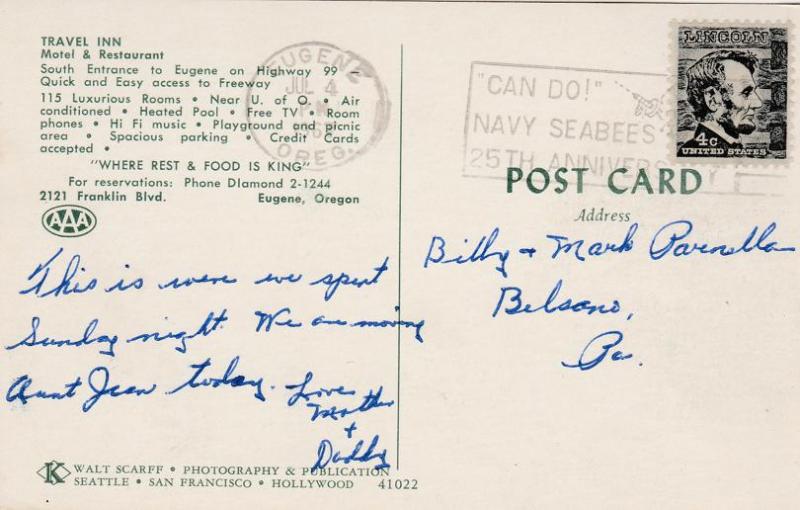 TRAVEL INN
Motel & Restaurant
South Entrance to Eugene on Highway 99 –
Quick and Easy access to Freeway
115 Luxurious Rooms • Near U. of O. • Air
conditioned • Heated Pool • Free TV • Room
phones • Hi Fi music • Playground and picnic
area • Spacious parking • Credit Cards
accepted •
"WHERE REST & FOOD IS KING"
For reservations: Phone DIamond 2-1244
2121 Franklin Blvd. Eugene, Oregon
AAA
This is were we spent
Sunday night. We are moving
Aunt Jean today. Love
Mother
+
Daddy
K WALT SCARFF • PHOTOGRAPHY & PUBLICATION
SEATTLE • SAN FRANCISCO • HOLLYWOOD 41022
EUGENE
JUL 4
PM
OREG.
"CAN DO!"
NAVY SEABEES
25TH ANNIVERS
LINCOLN
4c
UNITED STATES
POST CARD
Address
Billy + Mark Parnella
Belsano,
Pa.